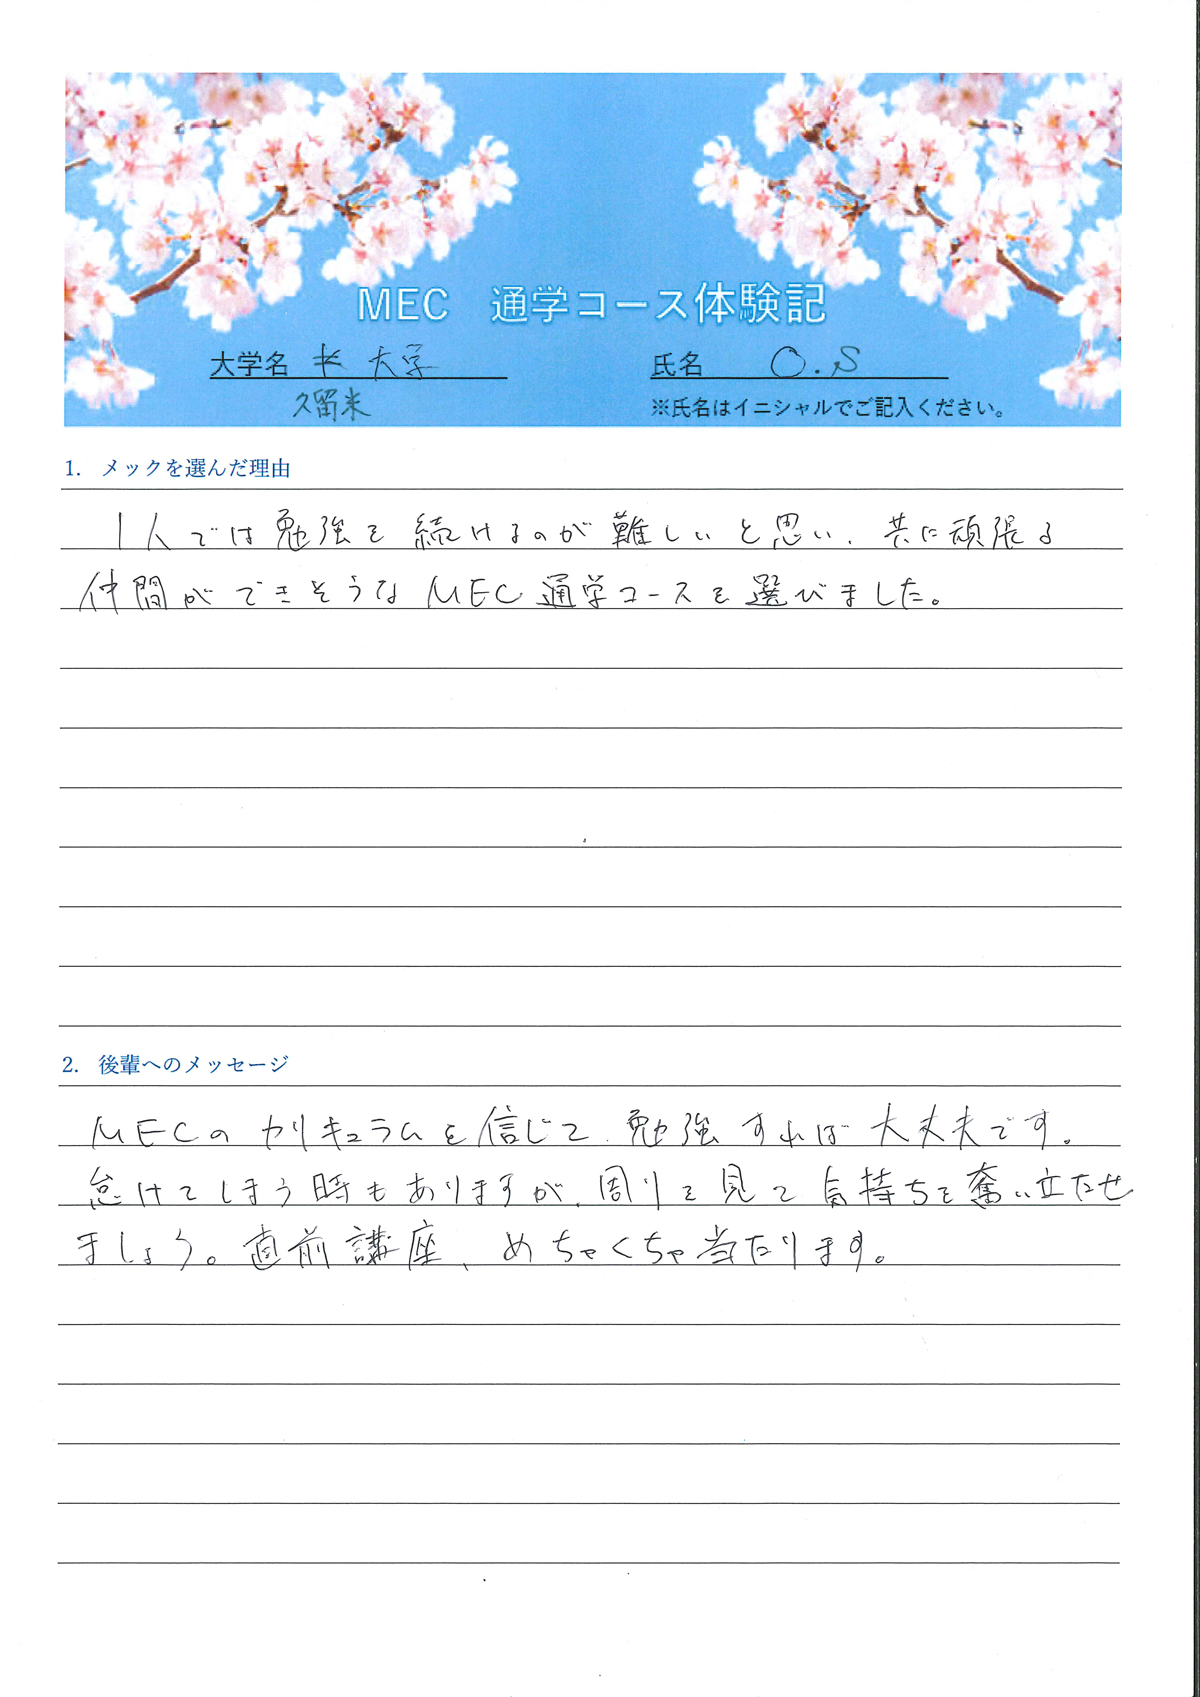 MEC 通学コース体験記
大学名 米 大学
氏名 O.S
久留米
※氏名はイニシャルでご記入ください。
1. メックを選んだ理由
1人では勉強を続けるのが難しいと思い、共に頑張る
仲間ができそうなMEC通学コースを選びました。
2. 後輩へのメッセージ
MECのカリキュラムを信じて、勉強すれば大丈夫です。
怠けてしまう時もありますが、周りを見て気持ちを奮い立たせ
ましょう。直前講座、めちゃくちゃ当たります。